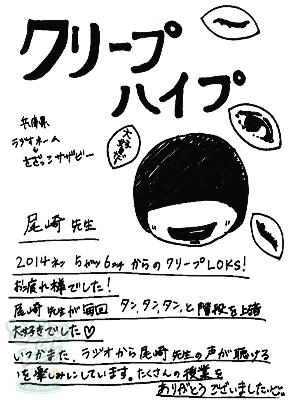 クリープ
ハイプ
兵庫県
ラジオネーム
尾崎 先生
2014年 5月6日からのクリープLOKS!
お疲れ様でした!
尾崎先生が毎回 タン、タン、タン、と階段を上る
大好きでした♡
いつかまた、ラジオから尾崎先生の声が聴ける
を楽しみにしています。たくさんの授業を
ありがとうございました